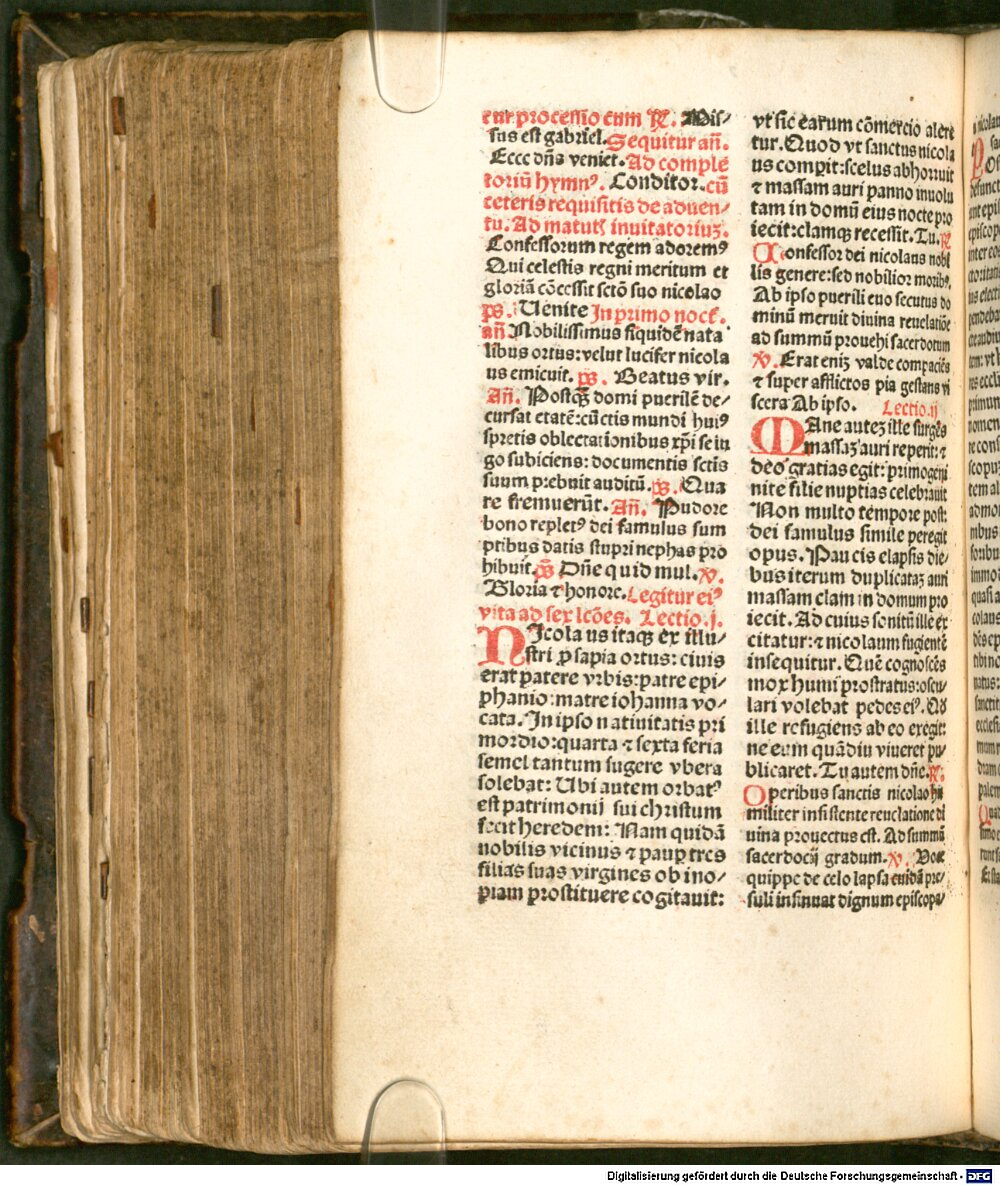 tur processio cum ꝶ. Mis⸗
sus est gabriel. Sequitur añ.
Ecce dñs veniet. Ad comple
toriũ hymnꝰ. Conditor. cũ
ceteris requisitis de aduen⸗
tu. Ad matutꝭ inuitatoriuꝫ.
Confessorum regem adoremꝰ
Qui celestis regni meritum et
gloriã cõcessit sctõ suo nicolao
ps. Uenite In primo nocť.
añ. Nobilissimus siquidẽ nata
libus ortus: velut lucifer nicola
us emicuit. ps. Beatus vir.
Añ. Postqꝫ domi puerilẽ de⸗
cursat etatẽ: cũctis mundi huiꝰ
spretis oblectationibus xp̃i se iu
go subiciens: documentis sctis
suum prebuit auditũ. ps. Qua
re fremuerũt. Añ. Pudore
bono repletꝰ dei famulus sum
ptibus datis stupri nephas pro
hibuit. ps. Dñe quid mul. ꝟ.
Gloria ⁊ honore. Legitur eiꝰ
vita ad sex lcões. Lectio .j.
NIcolaus itaqꝫ ex illu⸗
stri ꝓsapia ortus: ciuis
erat patere vrbis: patre epi⸗
phanio: matre iohanna vo⸗
cata. In ipso natiuitatis pri
mordio: quarta ⁊ sexta feria
semel tantum sugere vbera
solebat: Ubi autem orbatꝰ
est patrimonij sui christum
fecit heredem: Nam quidã
nobilis vicinus ⁊ pauꝑ tres
filias suas virgines ob ino⸗
piam prostituere cogitauit:
vt sic earum cõmercio alere
tur. Quod vt sanctus nicola
us comꝑit: scelus abhorruit
⁊ massam auri panno inuolu
tam in domũ eius nocte pro
iecit: clamqꝫ recessit. Tu. ꝶ
Confessor dei nicolaus nobi
lis genere: sed nobilior moribꝰ.
Ab ipso puerili euo secutus do
minũ meruit diuina reuelatiõe
ad summũ prouehi sacerdotum
ꝟ. Erat eniꝫ valde compaciẽs
⁊ super afflictos pia gestans vi
scera Ab ipso. Lectio .ij
MAne auteꝫ ille surgẽs
massaꝫ auri reperit: ⁊
deo gratias egit: primogeni
nite filie nuptias celebrauit
Non multo tempore post:
dei famulus simile peregit
opus. Paucis elapsis die⸗
bus iterum duplicataꝫ auri
massam clam in domum pro
iecit. Ad cuius sonitũ ille ex
citatur: ⁊ nicolaum fugientẽ
insequitur. Quẽ cognoscẽs
mox humi prostratus: oscu⸗
lari volebat pedes eiꝰ. Qđ
ille refugiens ab eo exegit:
ne eum quãdiu viueret pu⸗
blicaret. Tu autem dñe. ꝶ.
Operibus sanctis nicolao hu
militer insistente reuelatione di
uina prouectus est. Ad summũ
sacerdocij gradum. ꝟ. Vox
quippe de celo lapsa cuidã pre⸗
suli insinuat dignum episcopa⸗
Digitalisierung gefördert durch die Deutsche Forschungsgemeinschaft - DFG